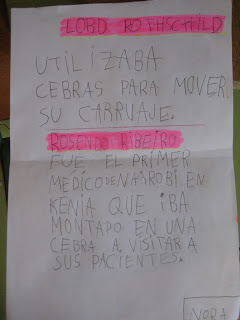 LORD ROTHSCHILD
UTILIZABA
CEBRAS PARA MOVER
SU CARRUAJE.
ROSENDO RIBEIRO
FUE EL PRIMER
MÉDICO DE NAIROBI EN
KENIA QUE IBA
MONTADO EN UNA
CEBRA A VISITAR A
SUS PACIENTES.
NORA